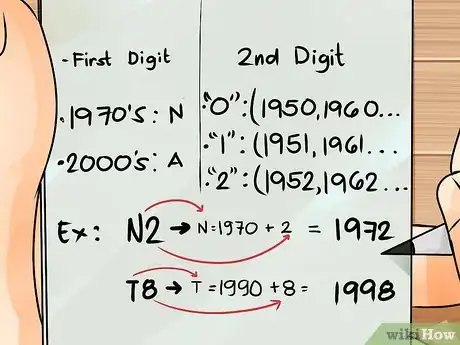 -First Digit
2nd Digit
•1970's: N
•2000's: A
•"0":(1950,1960...
•"1": (1951,1961...
•"2": (1952,1962...
Ex: N2 → N=1970 + 2 = 1972
T8 → T =1990 +8 = 1998
wikiHow